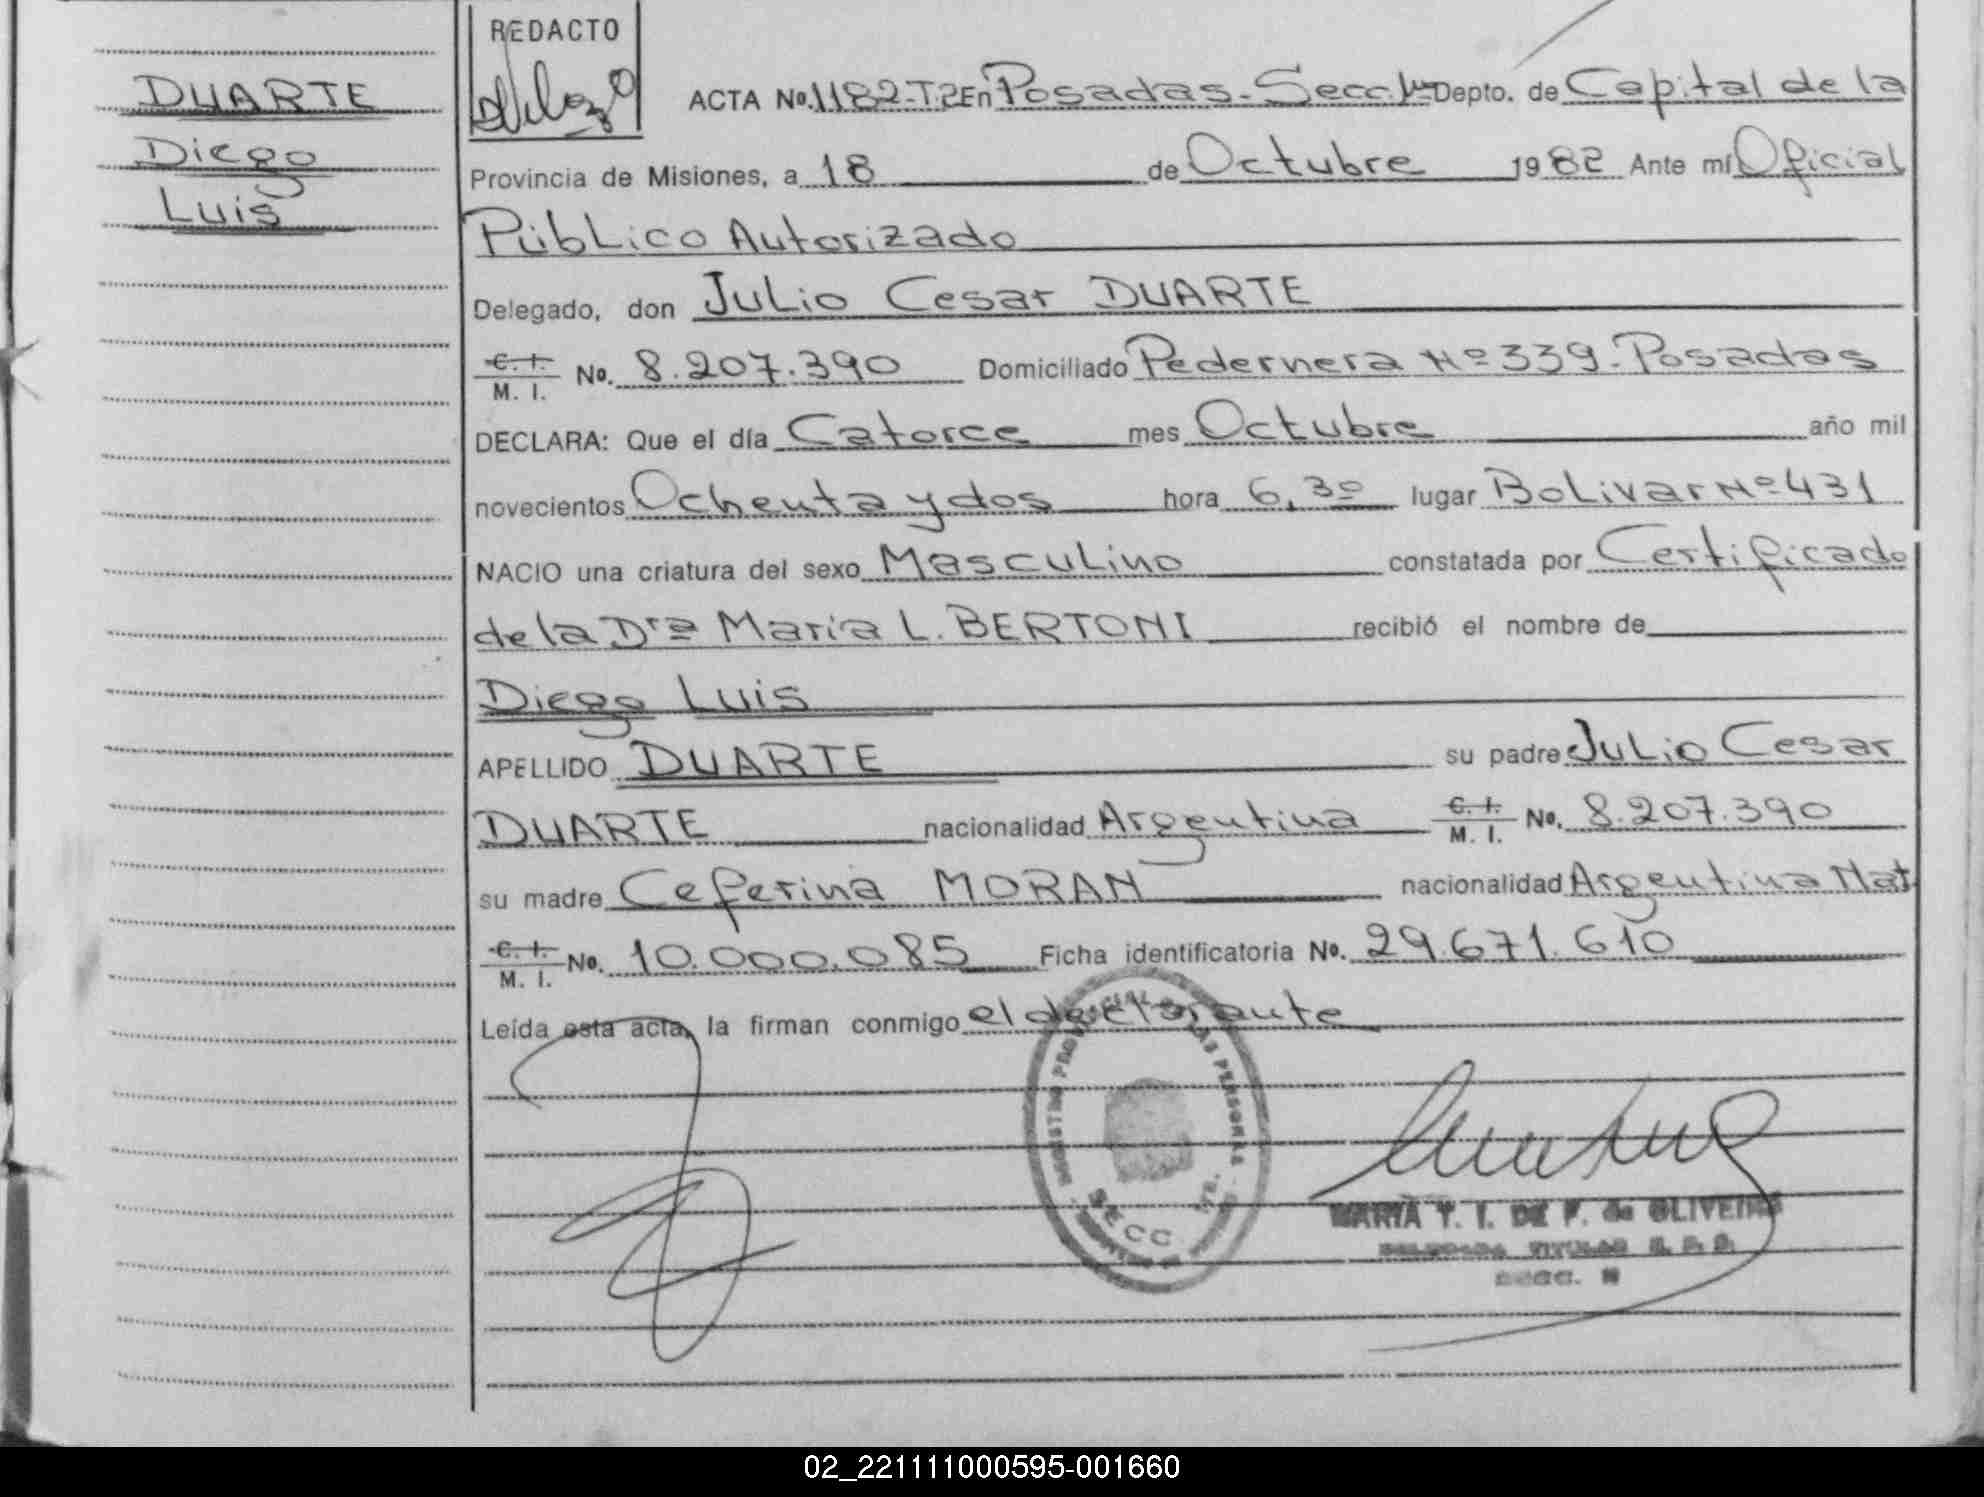 DUARTE
Diego
Luis
REDACTO
ACTA No. 1182-T.2 En Posadas - Secc. 1ra Depto. de Capital de la
Provincia de Misiones, a 18 de Octubre 1982 Ante mí Oficial
Público Autorizado
Delegado, don Julio Cesar DUARTE
C. I. / M. I. No. 8.207.390 Domiciliado Pedernera Nº 339 - Posadas
DECLARA: Que el día Catorce mes Octubre año mil
novecientos Ochenta y dos hora 6,30 lugar Bolivar Nº 431
NACIO una criatura del sexo Masculino constatada por Certificado
de la Dra Maria L. BERTONI recibió el nombre de
Diego Luis
APELLIDO DUARTE su padre Julio Cesar
DUARTE nacionalidad Argentina C. I. / M. I. No. 8.207.390
su madre Ceferina MORAN nacionalidad Argentina Nat
C. I. / M. I. No. 10.000.085 Ficha identificatoria No. 29.671.610
Leída esta acta, la firman conmigo el declarante
REGISTRO PROVINCIAL DE LAS PERSONAS
SECC
MARIA T. I. DE F. de OLIVEIRA
DELEGADA TITULAR R. P. P.
SECC.
02_221111000595-001660